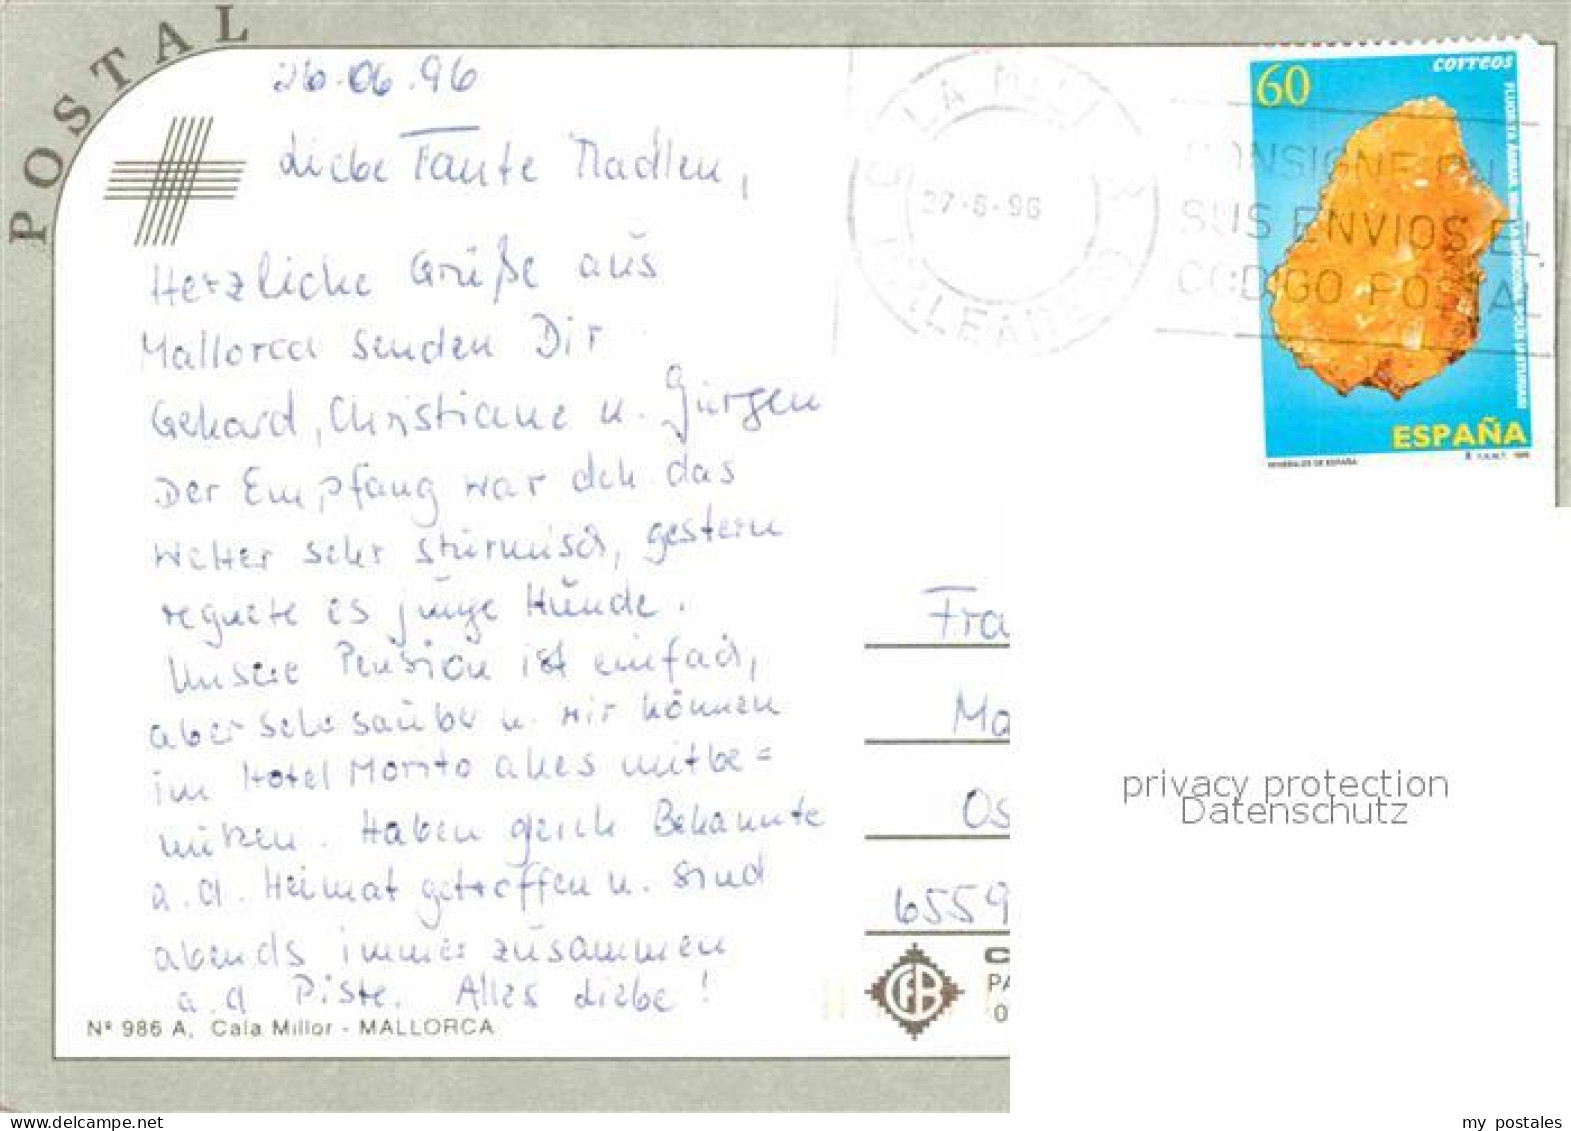 POSTAL
26.06.96
Liebe Tante Madlen,
Herzliche Grüße aus
Mallorca senden Dir
Gehard, Christiane u. Jürgen
Der Empfang war dch das
Wetter sehr stürmisch, gestern
regnete es junge Hunde.
Unsere Pension ist einfach,
aber sehr sauber u. wir können
im Hotel Morito alles mitbe=
nutzen. Haben gleich Bekannte
a.d. Heimat getroffen u. sind
abends immer zusammen
a.d Piste. Alles Liebe!
Nº 986 A, Cala Millor - MALLORCA
27-6-96
BALEARES
CONSIGNE EN
SUS ENVIOS EL
CODIGO POSTAL
60
correos
ESPAÑA
MINERALES DE ESPAÑA
F.N.M.T.
Fra
Ma
Os
6559
privacy protection
Datenschutz
my postales